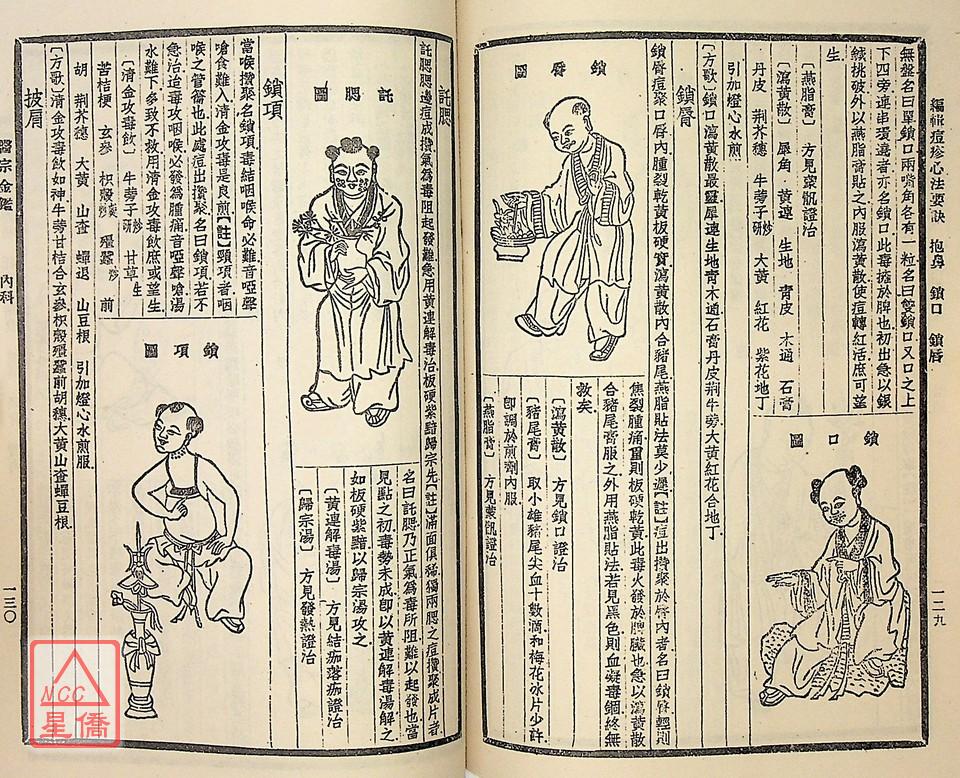 編輯痘疹心法要訣 抱鼻 鎖口 鎖唇
一二九
無盤名曰單鎖口兩嘴角各有一粒名曰雙鎖口又口之上
下四旁連串環遶者亦名鎖口此毒擁於脾也初出急以銀
鍼挑破外以燕脂膏貼之內服瀉黃散使痘轉紅活庶可望
生
〔燕脂膏〕 方見蒙骩證治
〔瀉黃散〕 犀角 黃連 生地 青皮 木通 石膏
丹皮 荆芥穗 牛蒡子炒研 大黃 紅花 紫花地丁
引加燈心水煎
鎖口圖
〔方歌〕鎖口瀉黃散最靈犀連生地青木通石膏丹皮荆牛蒡大黃紅花合地丁
鎖唇
鎖唇痘聚口唇內腫裂乾黃板硬實瀉黃散內合豬尾燕脂貼法莫少遲〔註〕痘出攢聚於唇內者名曰鎖唇輕則
焦裂腫痛重則板硬乾黃此毒火發於脾臟也急以瀉黃散
合豬尾膏服之外用燕脂貼法若見黑色則血凝毒錮終無
救矣
〔瀉黃散〕 方見鎖口證治
〔豬尾膏〕 取小雄豬尾尖血十數滴和梅花冰片少許
卽調於煎劑內服
〔燕脂膏〕 方見蒙骩證治
鎖唇圖
託腮
託腮遶痘成攢氣為毒阻起發難急用黃連解毒治板硬紫黯歸宗先〔註〕滿面俱稀獨兩腮之痘攢聚成片者
名曰託腮乃正氣為毒所阻難以起發也當
見點之初毒勢未成卽以黃連解毒湯解之
如板硬紫黯以歸宗湯攻之
〔黃連解毒湯〕 方見結痂落痂證治
〔歸宗湯〕 方見發熱證治
託腮圖
鎖項
當喉攢聚名鎖項毒結咽喉命必難音啞聲
嗆食難入清金攻毒是良煎〔註〕頸項者咽
喉之管籥也此處痘出攢聚名曰鎖項若不
急治迨毒攻咽喉必發為腫痛音啞聲嗆湯
水難下多致不救用清金攻毒飲庶或望生
〔清金攻毒飲〕 牛蒡子炒研 甘草生
苦桔梗 玄參 枳殼麩炒 殭蠶炒 前
胡 荆芥穗 大黃 山查 蟬退 山豆根 引加燈心水煎服
鎖項圖
〔方歌〕清金攻毒飲如神牛蒡甘桔合玄參枳殼殭蠶前胡穗大黃山查蟬豆根
披肩
醫宗金鑑 內科
一三〇
NCC
星僑